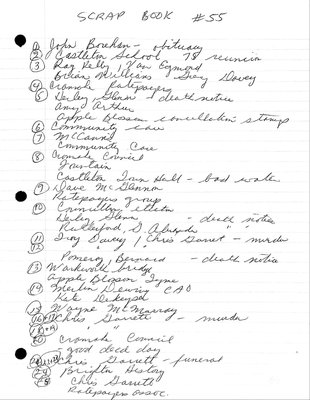 SCRAP BOOK #55
① John Boreham - obituary
② Castleton School 75 reunion
③ Ray Kelly, Van Egmond
Brian Williams Troy Davey
④ Cramahe Ratepayers
⑤ Harley Glenn - death notice
Amy Arthur
Apple Blossom cancellation stamp
⑥ Community care
⑦ McCann
Community Care
⑧ Cramahe Council
fountain
Castleton Town Hall - bad water
⑨ Dave McGlennon
Ratepayers group
⑩ Committee
Harley Glenn - death notice
Rutherford, " "
⑪ Troy Davey, Chris Garrett - murder
⑫ Pomeroy, Bernard - death notice
⑬ Warkworth bridge
Apple Blossom Tyme
⑭ Merlin Dewing CAO
Kate
⑮ Wayne McMurray
⑯+⑰ Chris Garrett - murder
⑱+⑲ " "
⑳ Cramahe Council
good deed day
Chris Garrett - funeral
㉔ Brighton History
㉕ Chris Garrett
Ratepayers assoc.